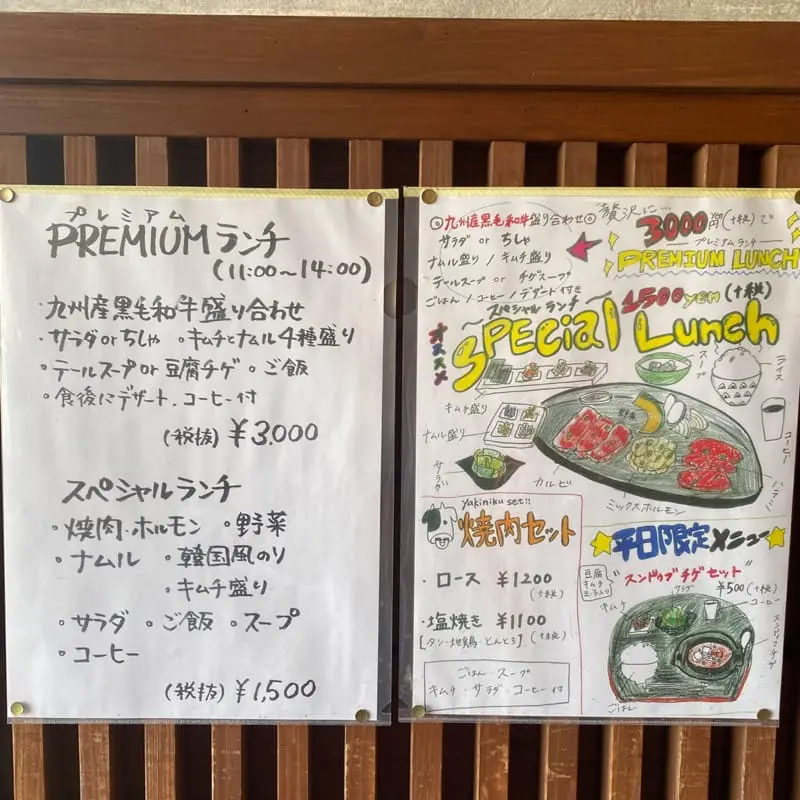 プレミアム
PREMIUM ランチ
(11:00〜14:00)
・九州産黒毛和牛盛り合わせ
・サラダorちしゃ ・キムチとナムル4種盛り
・テールスープor豆腐チゲ ・ご飯
・食後にデザート.コーヒー付
(税抜) ¥3,000
スペシャルランチ
・焼肉.ホルモン ・野菜
・ナムル ・韓国風のり
・キムチ盛り
・サラダ ・ご飯 ・スープ
・コーヒー
(税抜) ¥1,500
◎九州産黒毛和牛盛り合わせ◎
サラダ or ちしゃ
ナムル盛り / キムチ盛り
テールスープ or チゲスープ
ごはん / コーヒー / デザート付き
贅沢に...
3000円(+税)で
プレミアムランチ
PREMIUM LUNCH
スペシャルランチ
1500 YEN (+税)
オススメ
SPECial Lunch
スープ
ライス
キムチ盛り
ナムル盛り
野菜
コーヒー
サラダ
カルビ
ハラミ
ミックスホルモン
yakiniku set!!
焼肉セット
・ロース ¥1200
(+税)
・塩焼き ¥1100
[タン・地鶏・とんとろ] (+税)
ごはん・スープ
キムチ・サラダ・コーヒー付
平日限定メニュー
豆腐
キムチ
"スンドゥブチゲセット"
¥500(+税)
サラダ
コーヒー
キムチ
スンドゥブチゲ
ごはん